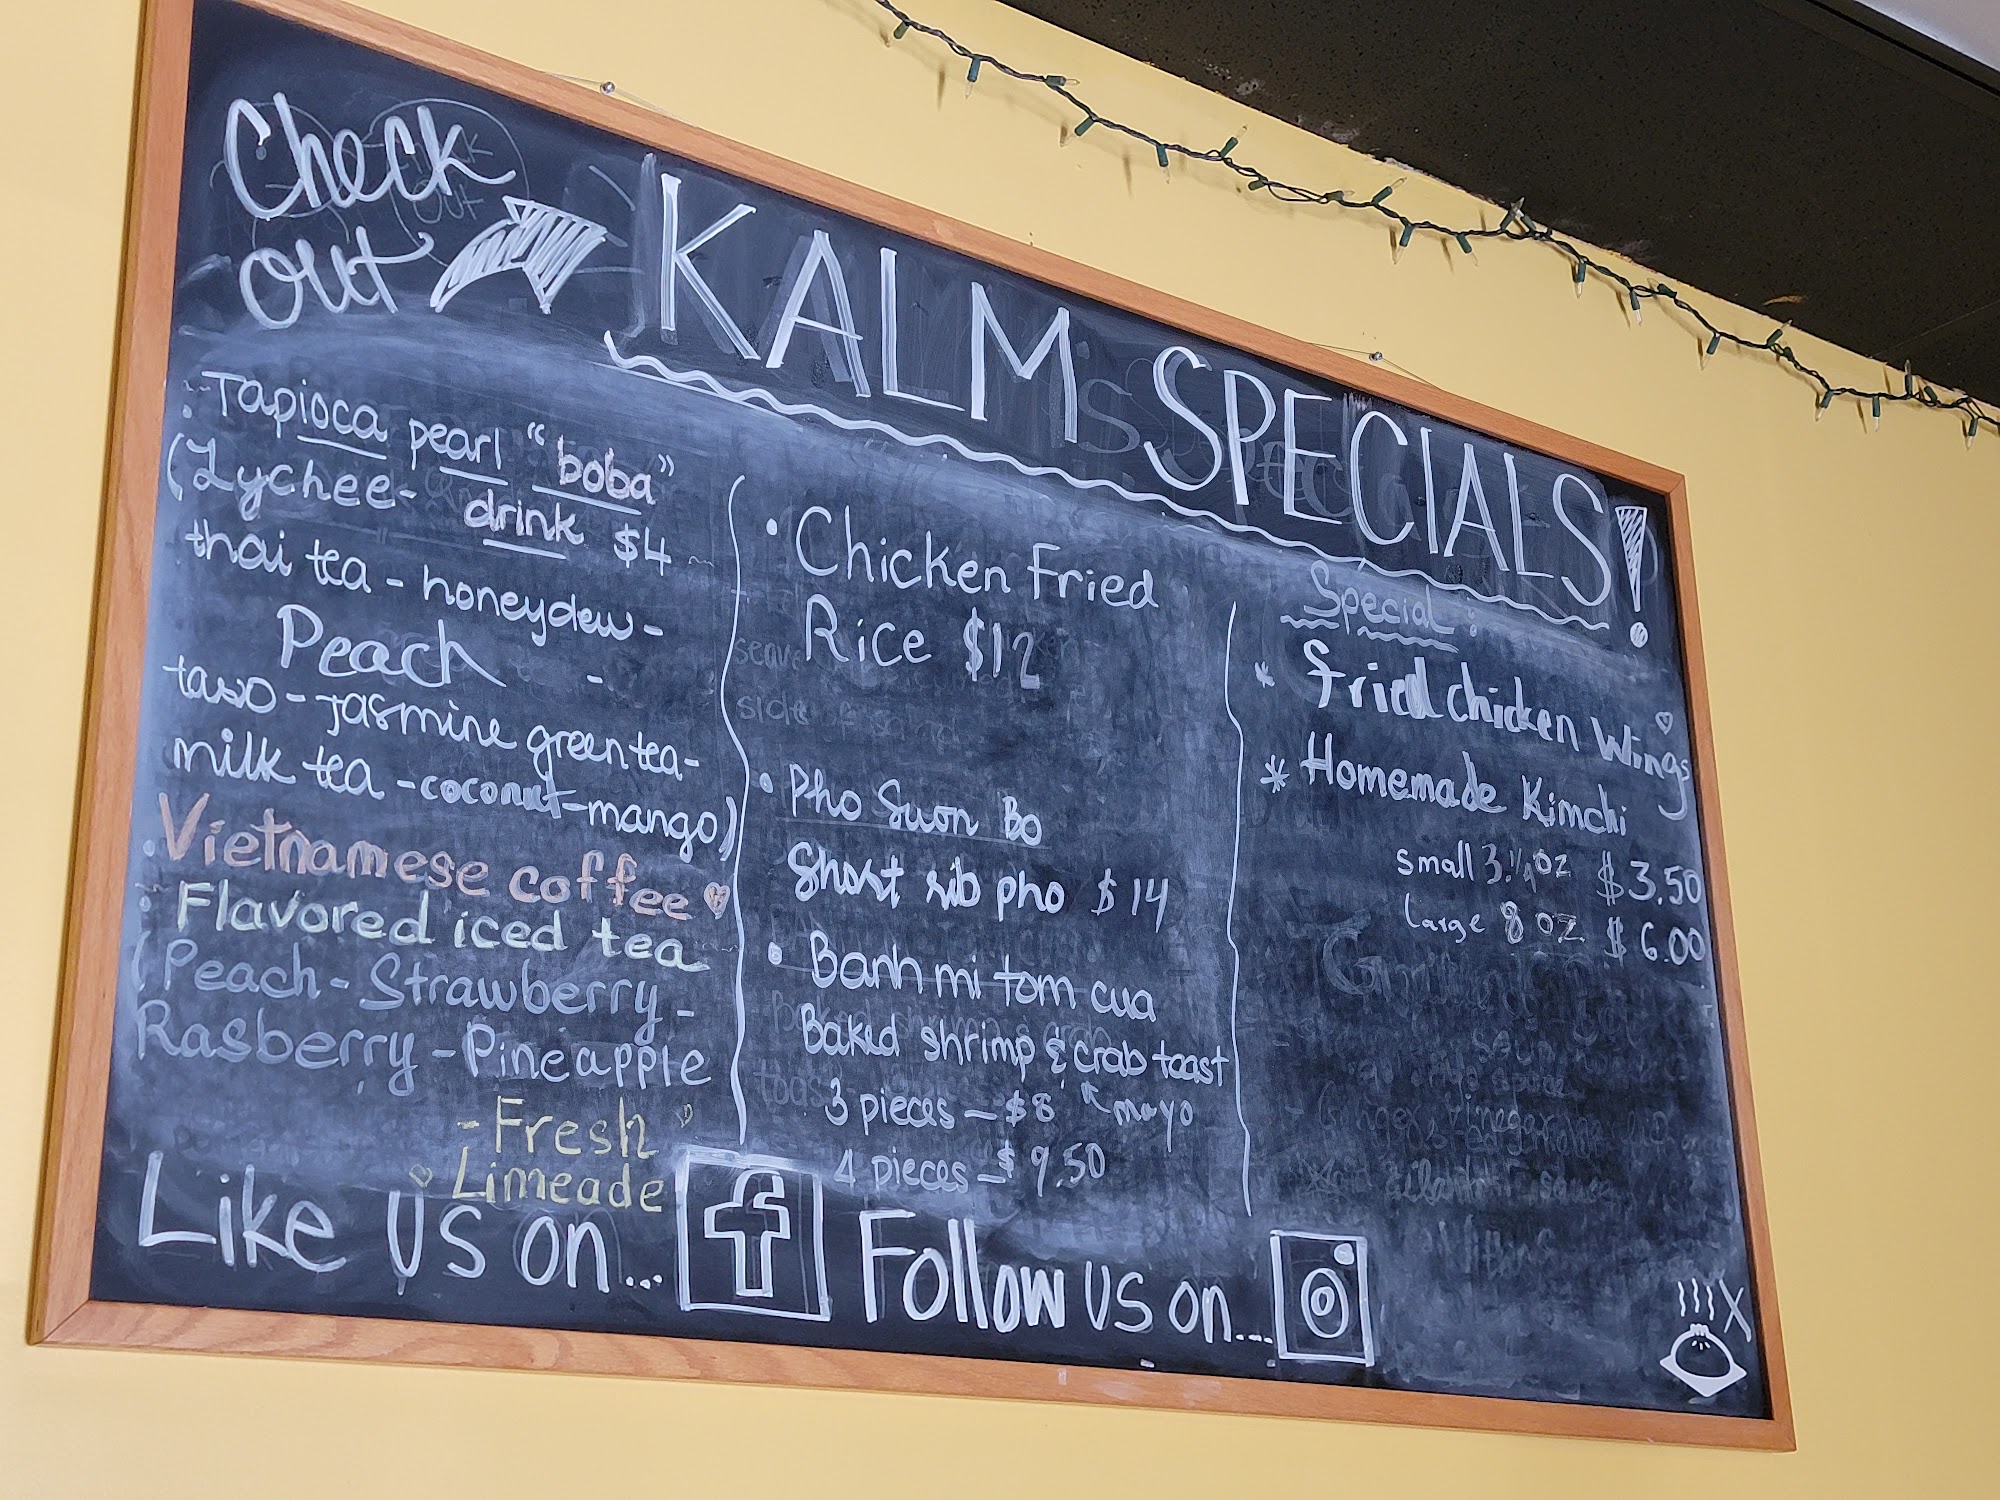 Check
out
KALM SPECIALS!
Tapioca pearl "boba"
drink $4
(Lychee-
thai tea - honeydew -
Peach -
taro - Jasmine green tea-
milk tea - coconut - mango)
Vietnamese coffee
Flavored iced tea
(Peach - Strawberry -
Rasberry - Pineapple
- Fresh
Limeade
• Chicken Fried
Rice $12
• Pho Suon Bo
Short rib pho $14
• Banh mi tom cua
Baked shrimp & crab toast
3 pieces - $8 mayo
4 pieces - $9.50
Special:
* Fried chicken Wings
* Homemade Kimchi
Small 3.1/4oz $3.50
Large 8 oz. $6.00
Like us on... f Follow us on...